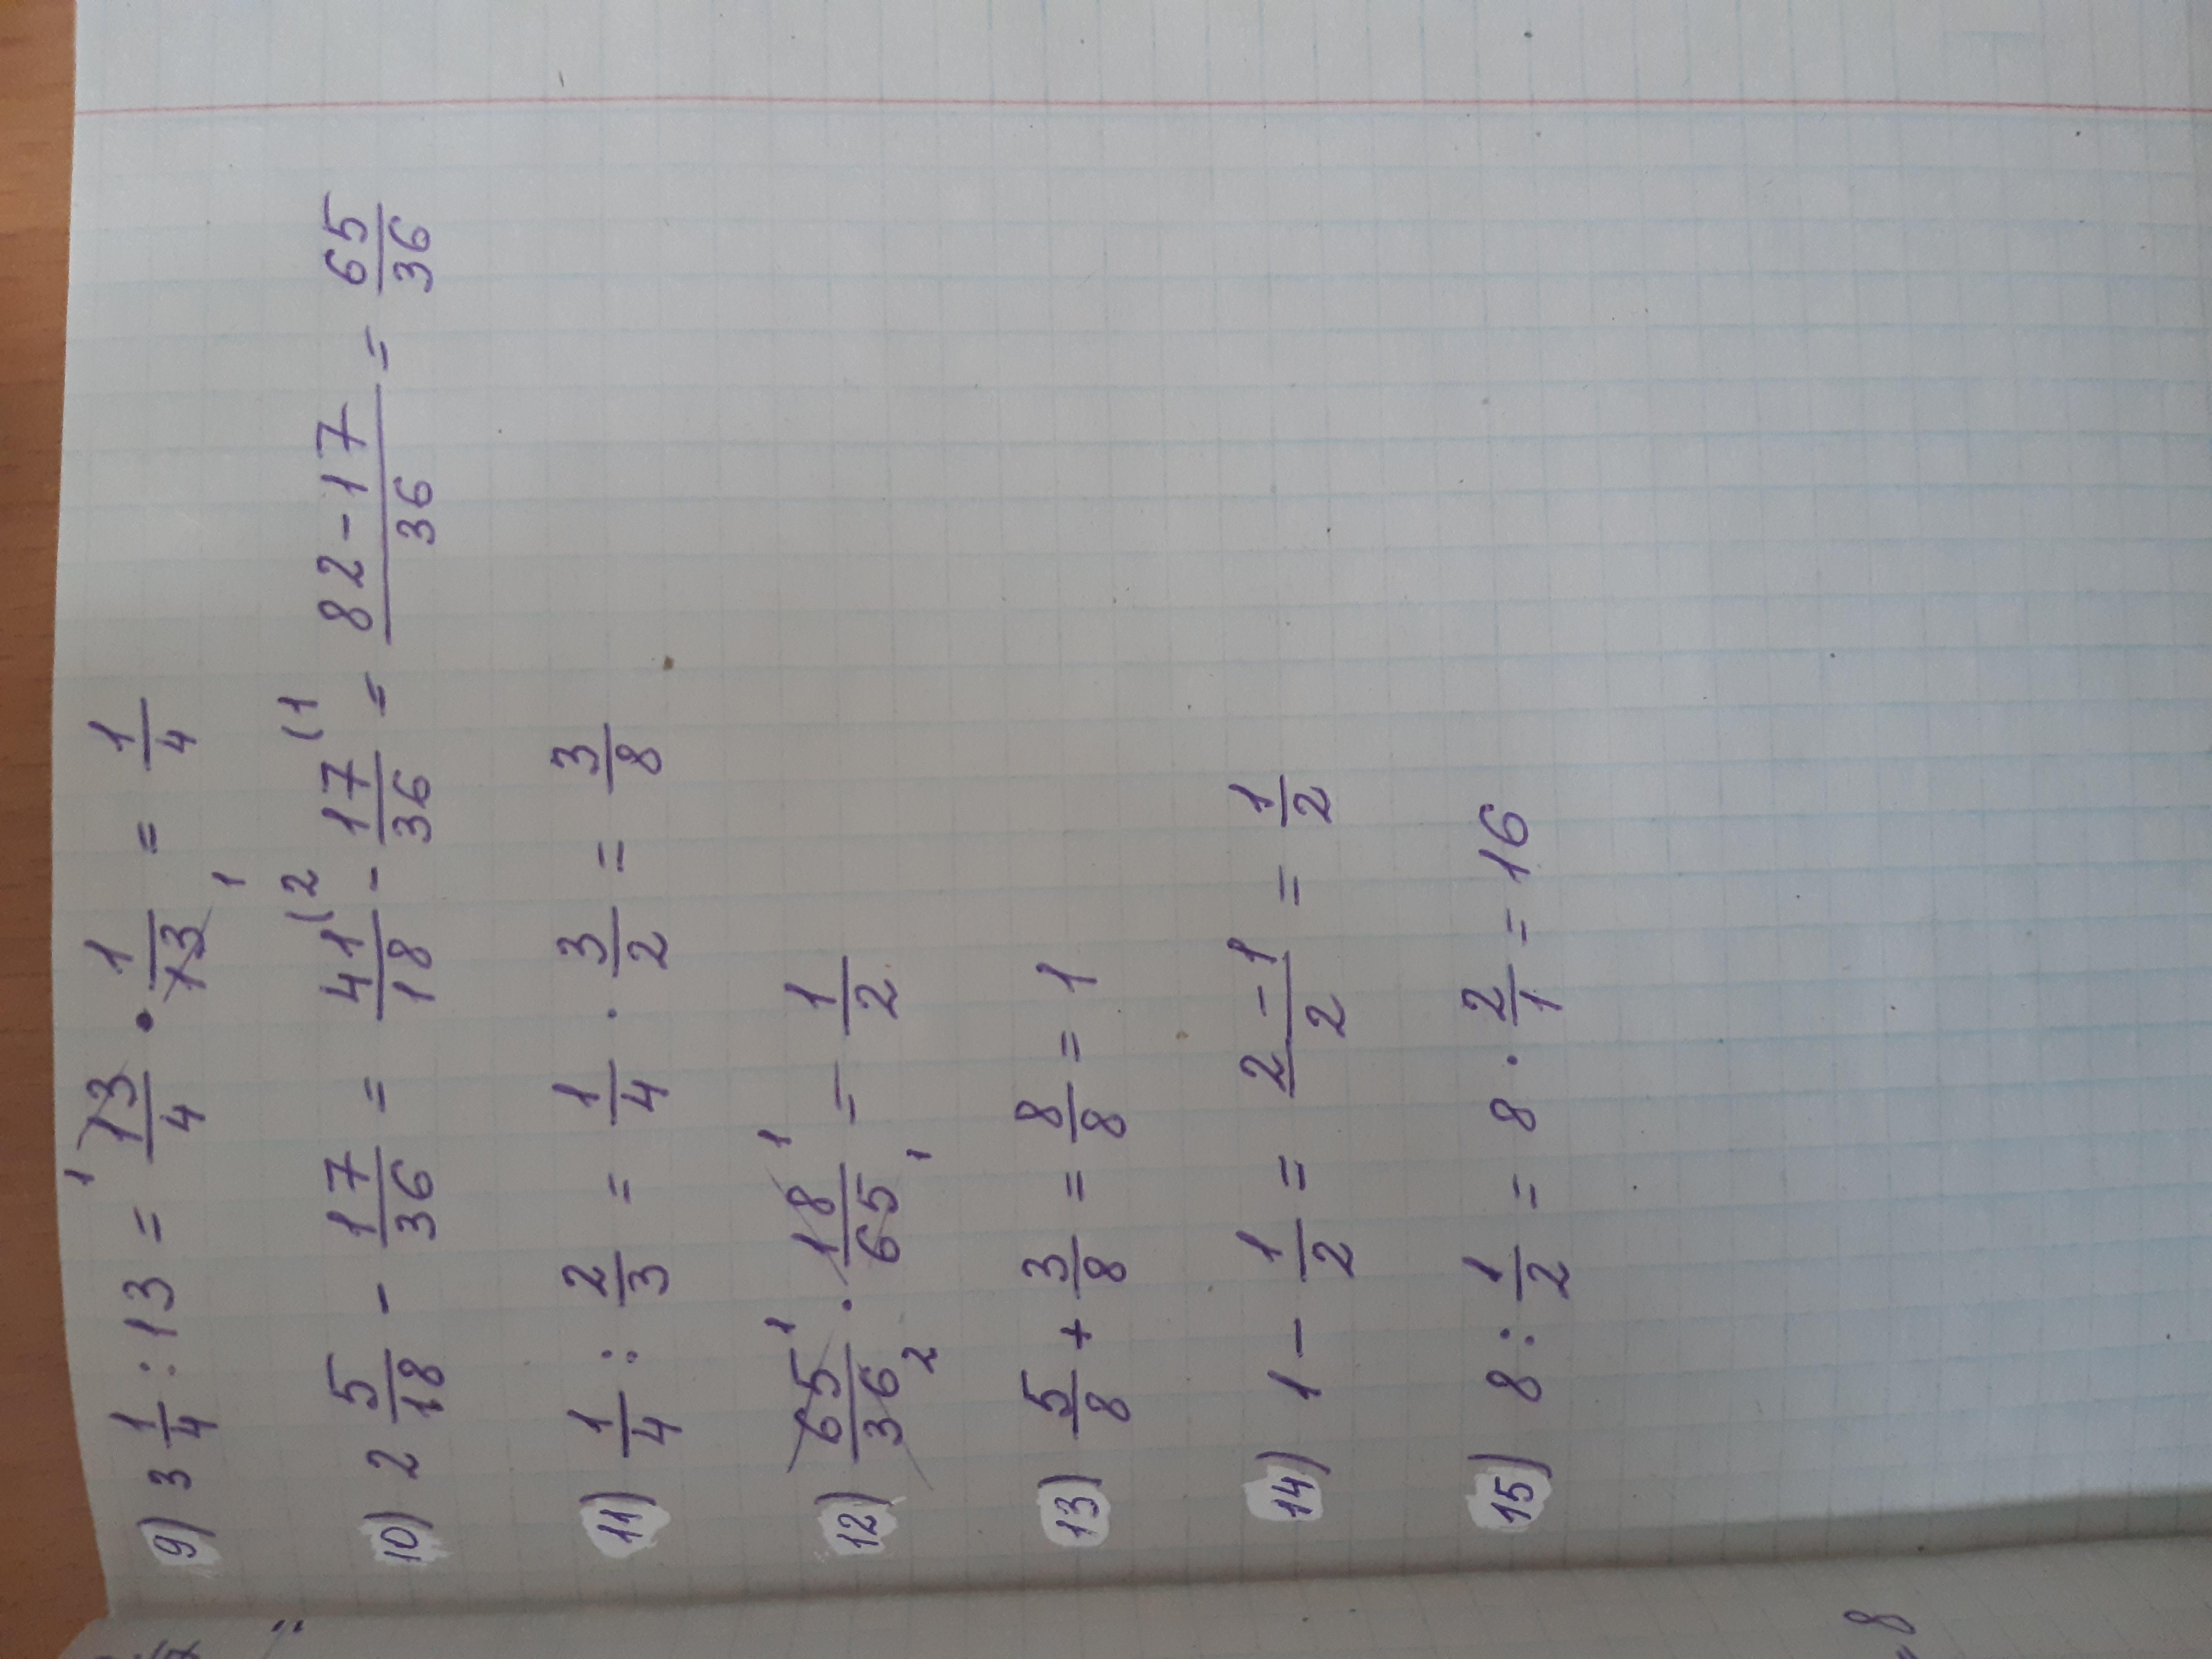 9) 3 1/4 : 13 = 13/4 · 1/13 = 1/4
10) 2 5/18 - 17/36 = 41/18 (2 - 17/36 (1 = 82-17/36 = 65/36
11) 1/4 : 2/3 = 1/4 · 3/2 = 3/8
12) 65/36 · 18/65 = 1/2
13) 5/8 + 3/8 = 8/8 = 1
14) 1 - 1/2 = 2-1/2 = 1/2
15) 8 : 1/2 = 8 · 2/1 = 16
8